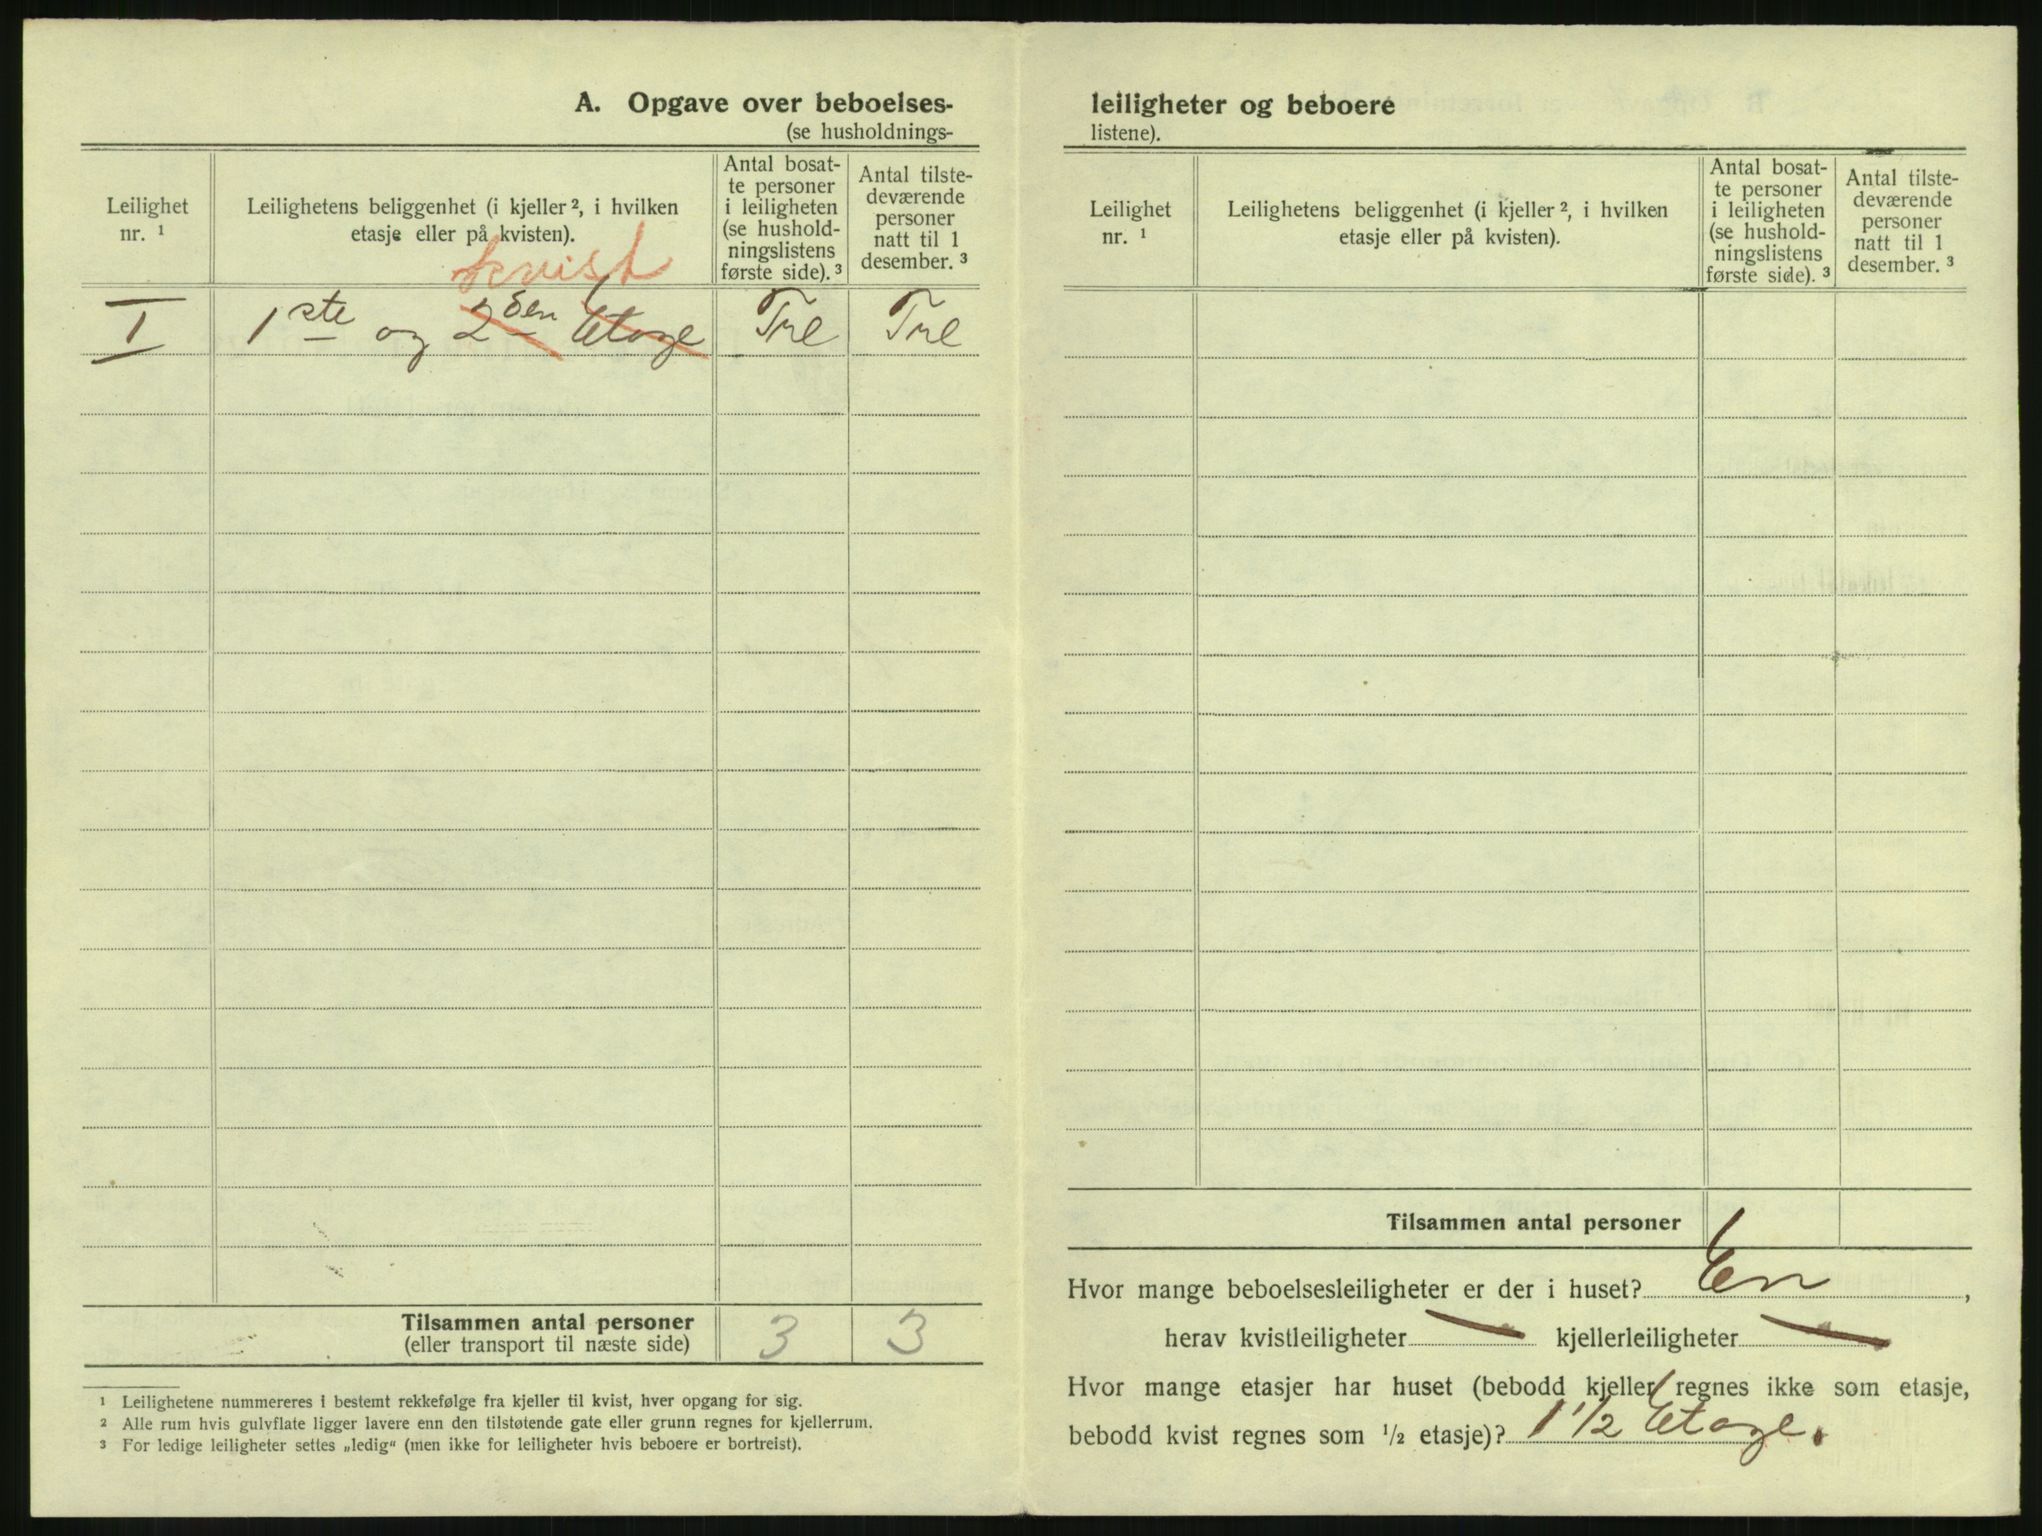 A. Opgave over beboelses-
(se husholdnings-
Leilighet
nr. ¹
Leilighetens beliggenhet (i kjeller ², i hvilken
etasje eller på kvisten).
Antal bosat-
te personer
i leiligheten
(se hushold-
ningslistens
første side). ³
Antal tilste-
deværende
personer
natt til 1
desember. ³
kvist
I 1ste og 2den Etage Tre Tre
Tilsammen antal personer 3 3
(eller transport til næste side)
¹ Leilighetene nummereres i bestemt rekkefølge fra kjeller til kvist, hver opgang for sig.
² Alle rum hvis gulvflate ligger lavere enn den tilstøtende gate eller grunn regnes for kjellerrum.
³ For ledige leiligheter settes „ledig“ (men ikke for leiligheter hvis beboere er bortreist).
leiligheter og beboere
listene).
Leilighet
nr. ¹
Leilighetens beliggenhet (i kjeller ², i hvilken
etasje eller på kvisten).
Antal bosat-
te personer
i leiligheten
(se hushold-
ningslistens
første side). ³
Antal tilste-
deværende
personer
natt til 1
desember. ³
Tilsammen antal personer
Hvor mange beboelsesleiligheter er der i huset? En,
herav kvistleiligheter — kjellerleiligheter —
Hvor mange etasjer har huset (bebodd kjeller regnes ikke som etasje,
bebodd kvist regnes som ½ etasje)? 1 ½ Etage.